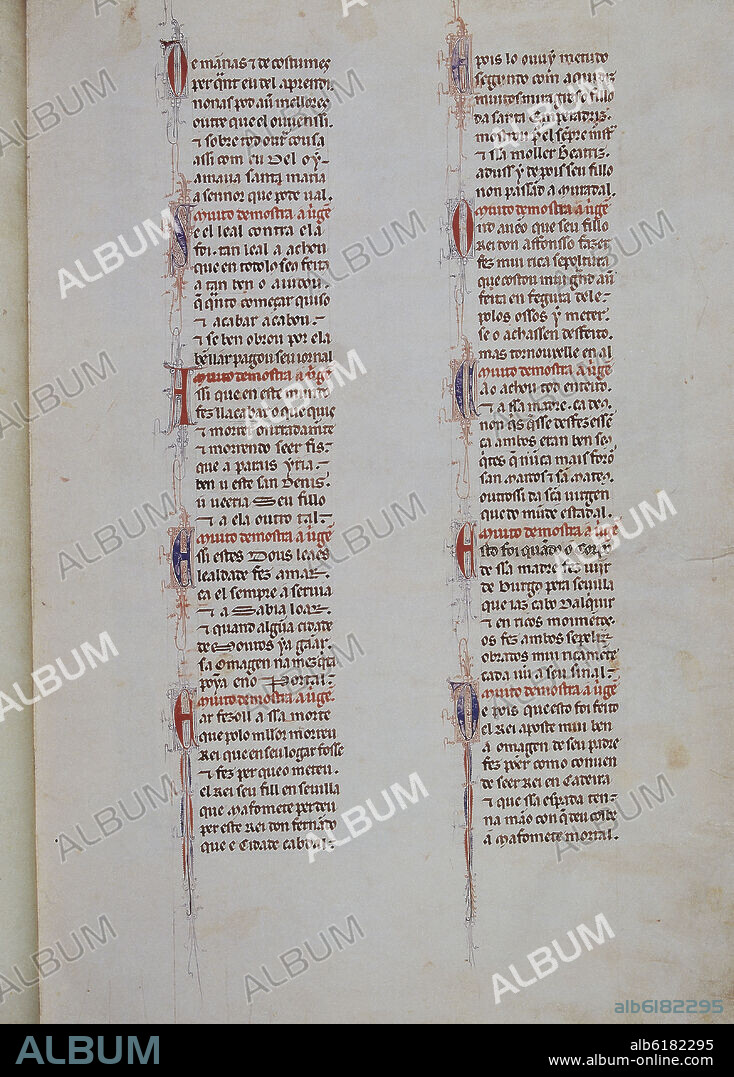 De mañas ⁊ de costumes
per qñt eu del aprendi.
nonas pod añ mellores
outre que el ouuessi.
⁊ sobre tod out̃ cousa
assi com eu del oy.
amaua santa maria
a sennor que pote ual.
Muito demostra a uigẽ
Se el leal contra ela
foi. tan leal a achou
que en todolos seus feitos
a tan ben o aiudou.
q̃ qñto começar quiso
⁊ acabar acabou.
⁊ se ben obrou por ela
ben llar pagou seu iornal
Muito demostra a uigẽ
Assi que en este mundo
fez ll acabar o que quis
⁊ morrer onrradamẽte
⁊ morrendo seer fis.
que a parais yria.
ben u este san Denis.
u ueeria Seu fillo
⁊ a ela outro tal.
Muito demostra a uigẽ
Essi estes Dous leaes
lealdade fez amar.
ca el sempre a seruia
⁊ a Sabia loar.
⁊ quand algũa cidade
de Mouros ya gãar.
sa Omagen na mezq̃ta
poya eno Portal.
Muito demostra a uigẽ.
E ar fezoll a ssa morte
que polo mllor morreu
Rei que en seu logar fosse
⁊ fez per que o meteu.
el Rei seu fill en seuilla
que Mafomete perdeu
per este Rei don fernãdo
que e Cidade cabdal.
E pois lo ouuy metudo
segundo com aquidiz
muitos miragr̃ e seu fillo
da santa Emperadriz.
mostrou p̃ el sẽpre
⁊ ssa moller Beatriz.
aduss y depois seu fillo
non passãd a Muradal.
Muito demostra a uigẽ
Ond aueo que seu fillo
Rei don affonsso fazer
fez mui rica sepoltura
que costou muit grãd auer
feita en fegura dele.
polos ossos y meter.
se o achassen desfeito.
mas tornouxelle en al
Muito demostra a uigẽ
Ca o achou tod enteiro.
⁊ a ssa madre. ca deus
non q̃s q̃sse desfezesse
ca ambos eran ben seus
q̃tes q̃ nũca mais forõ
san Marcos ⁊ sã mateus
outrossi da scã uirgen
que do mũd e estadal.
Muito demostra a uigẽ
Esto foi quãdo o Corpo
de ssa madre fez uĩir
de Burgos pera seuilla
que iaz cabo Dalq̃uir
⁊ en ricos moimẽtos.
os fez ambos sepelir
obrados mui ricamẽte
cada ũu a seu sinal.
Muito demostra a uigẽ
De pois que esto foi feito
el Rei aposte mui ben
a omagen de seu padre
fez põer como conuen
de seer Rei en Cadeira
⁊ que ssa espada ten.
na mão con q̃ deu colbe
a Mafomete mortal.
ALBUM
alb6182295
ALBUM
alb6182295
www.album-online.com